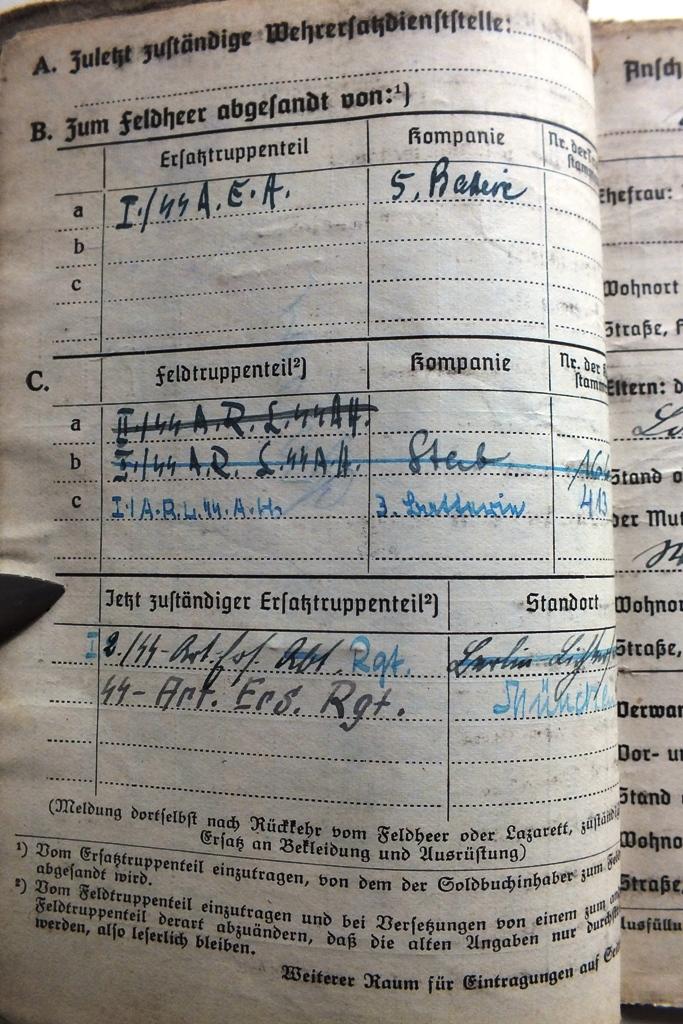 A. Zuletzt zuständige Wehrersatzdienststelle:
B. Zum Feldheer abgesandt von:¹)
Ersatztruppenteil Kompanie Nr. der
a I./SS A.E.A. 5. Batterie
b
c
C. Feldtruppenteil²) Kompanie Nr. der
a II./SS A.R. L.SS A.H.
b I./SS A.R. L.SS A.H. Stab
c I./A.R.L.SS.A.H. 3. Batterie 413
Jetzt zuständiger Ersatztruppenteil²) Standort
I 2./SS-Art. Ers. Abt. Rgt. Berlin
SS-Art. Ers. Rgt. München
(Meldung dortselbst nach Rückkehr vom Feldheer oder Lazarett,
Ersatz an Bekleidung und Ausrüstung)
¹) Vom Ersatztruppenteil einzutragen, von dem der Soldbuchinhaber zum
abgesandt wird.
²) Vom Feldtruppenteil einzutragen und bei Versetzungen von einem zum
Feldtruppenteil derart abzuändern, daß die alten Angaben nur
werden, also leserlich bleiben.
Weiterer Raum für Eintragungen auf
Ansch
Ehefrau:
Wohnort
Straße,
Eltern: d
Stand
der Mut
Wohnor
Straße,
Verwan
Vor- u
Stand
Wohno
Straße,